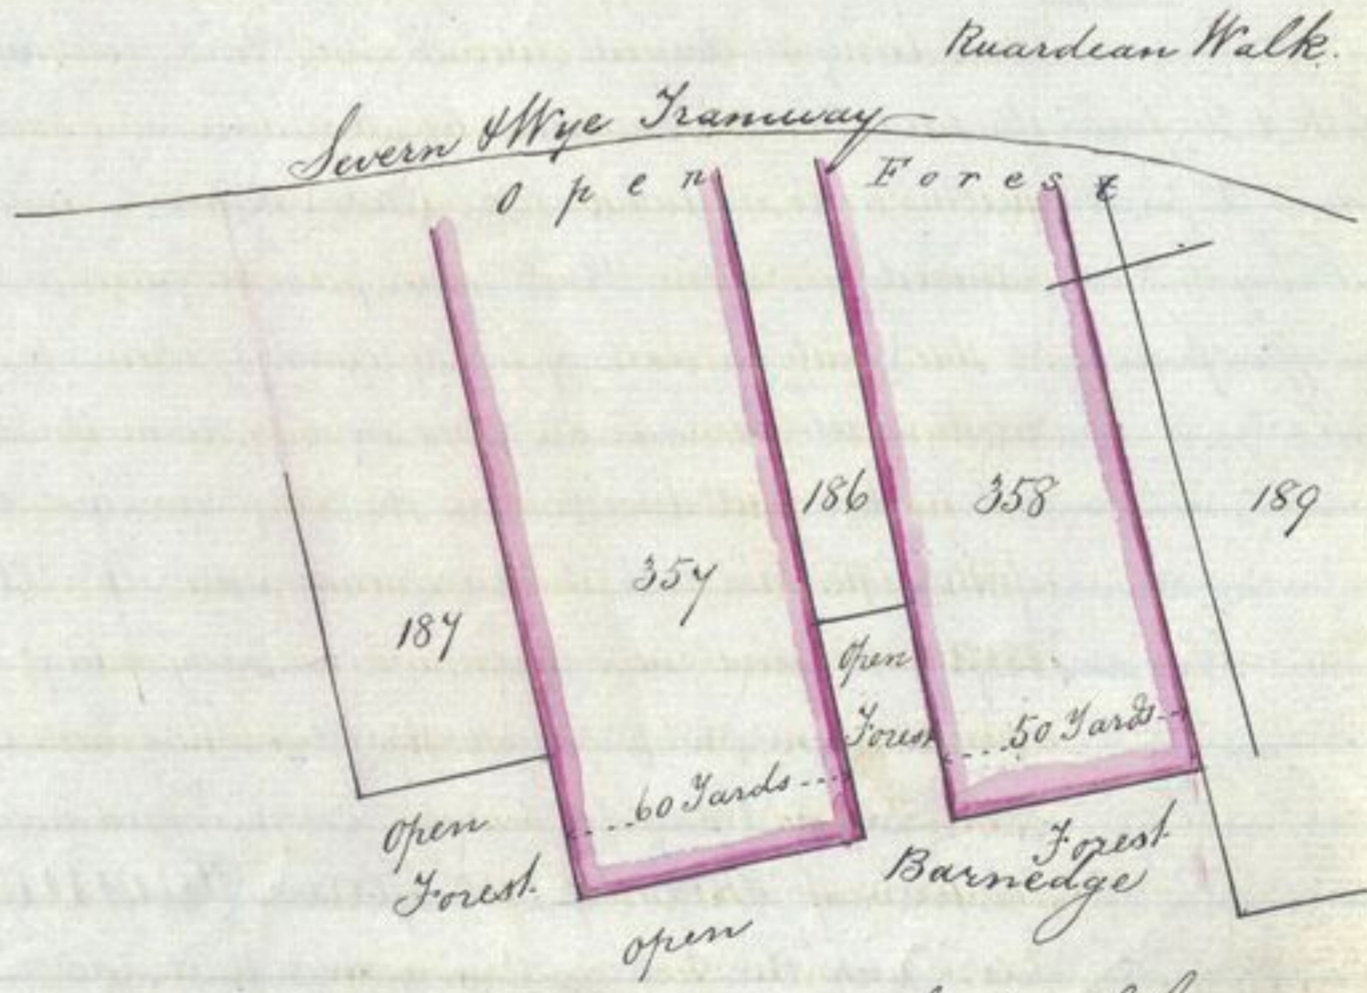 Ruardean Walk.
Severn & Wye Tramway
Open Forest
186
358
189
357
187
Open
Forest
50 Yards
60 Yards
Open
Forest
Forest
Barnedge
open